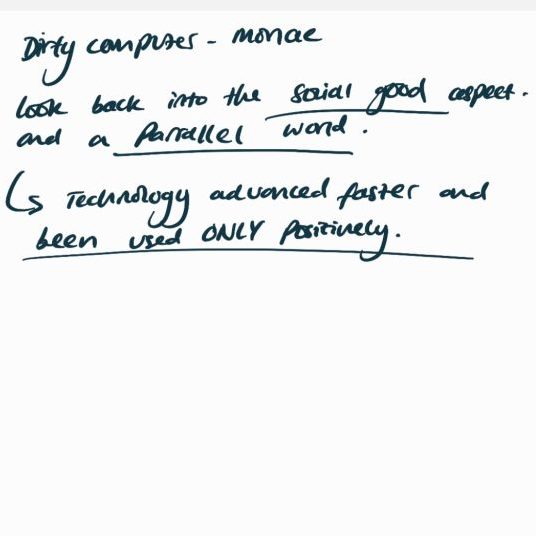 Dirty computer - monae
look back into the social good aspect.
and a Parrallel world.
↳ Technology advanced faster and
been used ONLY Positively.